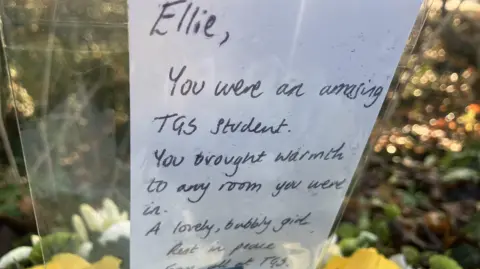 Ellie,
You were an amazing
TGS student.
You brought warmth
to any room you were
in.
A lovely, bubbly girl.
Rest in peace
all at TGS.